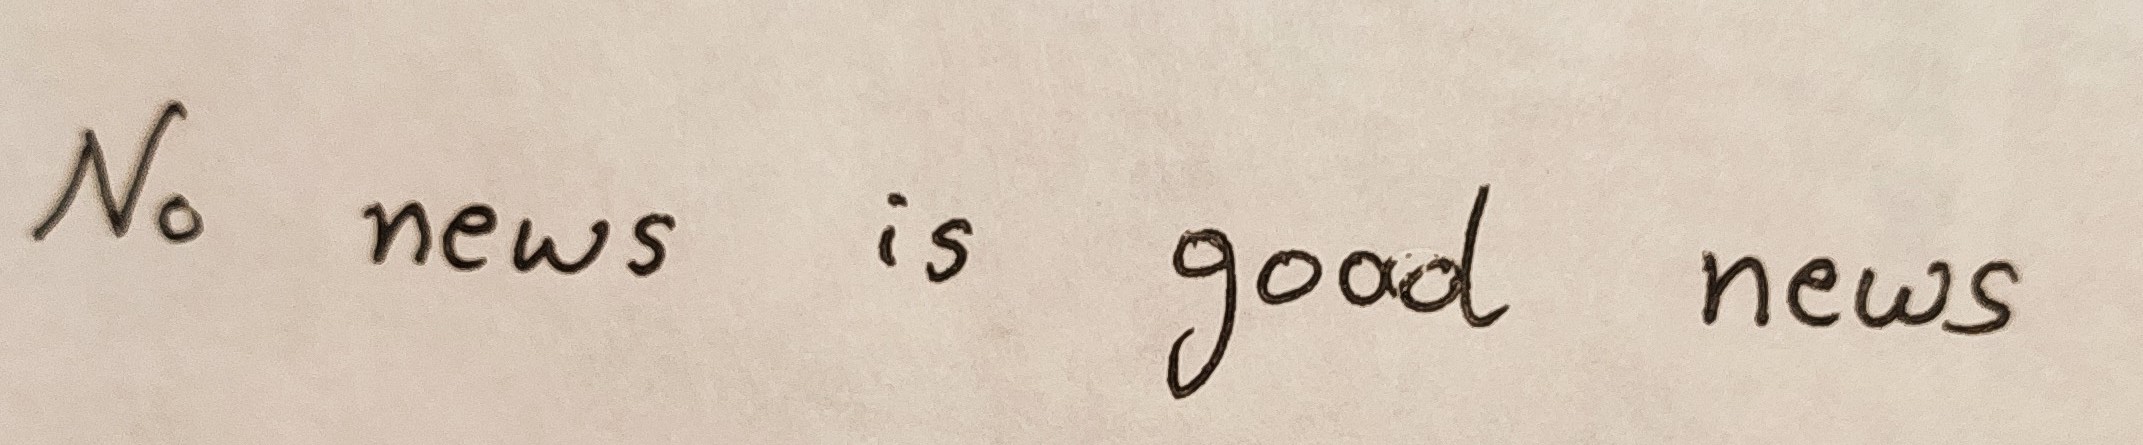 No news is good news